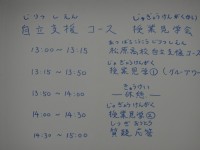 じりつしえん じゅぎょうけんがくかい
自立支援 コース 授業見学会
13:00 ～ 13:15 松原高校自立支援コース
じゅぎょうけんがく
13:15 ～ 13:50 授業見学①
きゅうけい
13:50 ～ 14:00 ―休憩―
じゅぎょうけんがく
14:00 ～ 14:30 授業見学②
しつぎおうとう
14:30 ～ 15:00 質疑応答